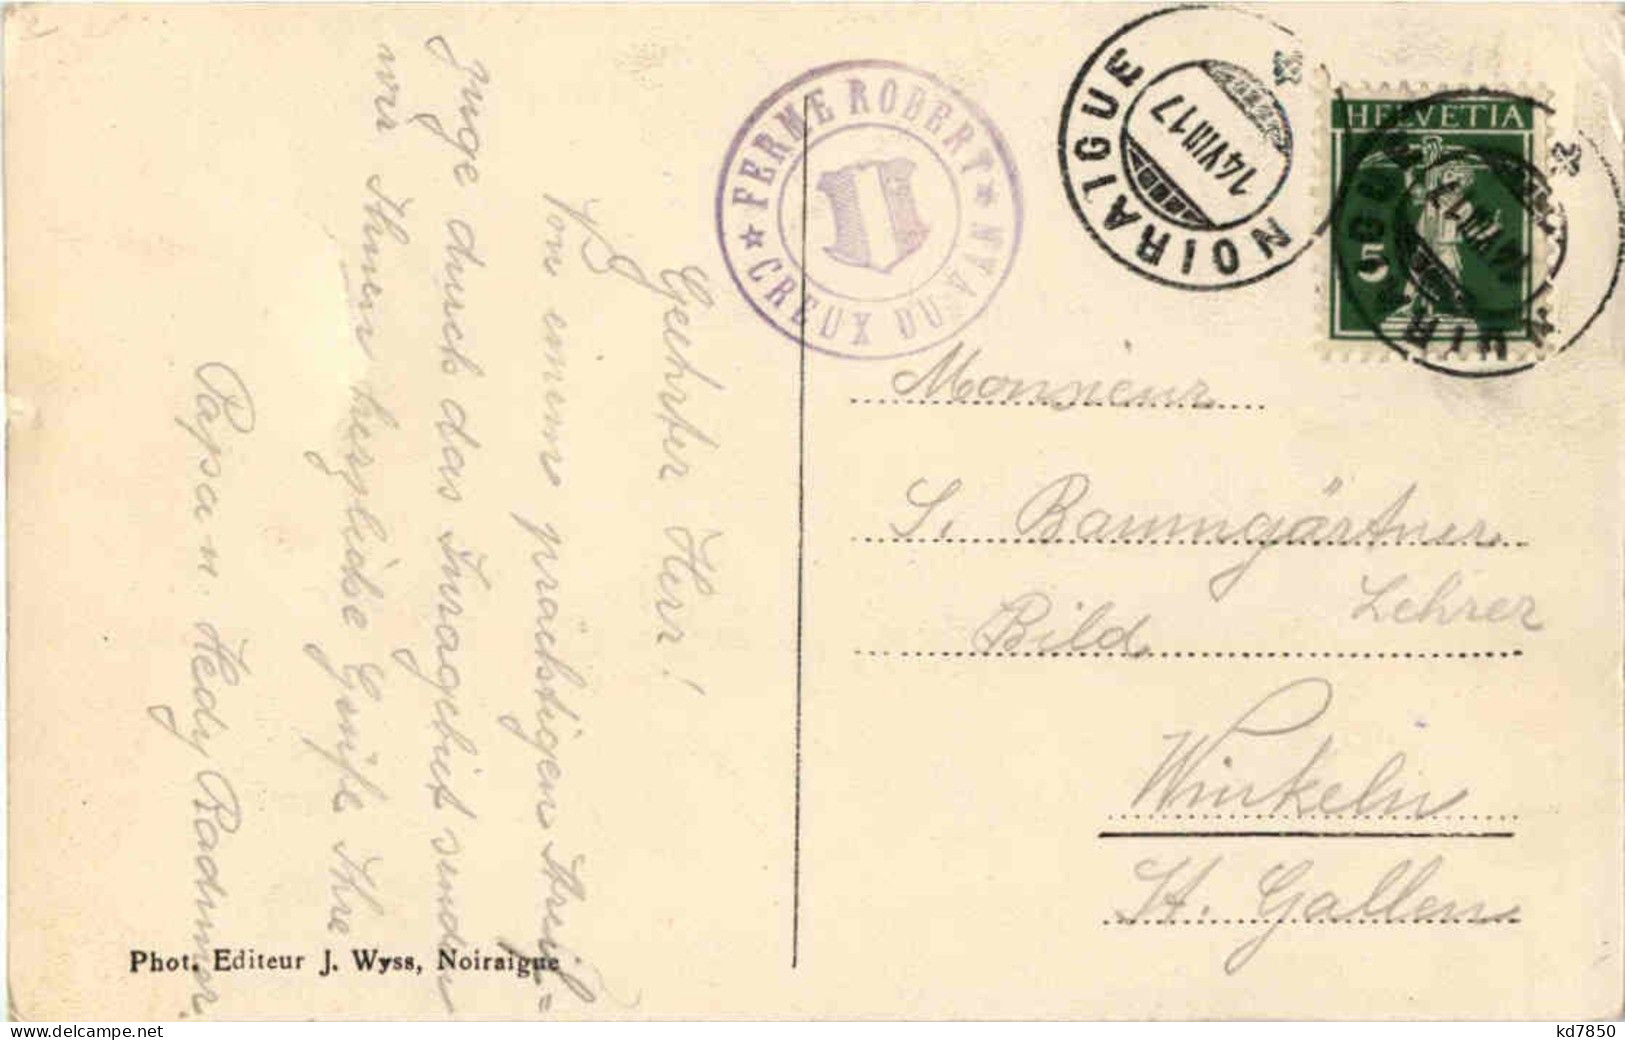 Geehrter Herr!
Von einem prächtigen Streif=
zuge durch das Juragebiet senden
wir Ihnen herzliche Grüsse Ihre
Papa u. Hedy
FERME ROBERT
★ CREUX DU VAN ★
NOIRAIGUE
14 VIII 17
HELVETIA
5
NOIRAIGUE
14 VIII 17
Monsieur
S. Baumgärtner
Lehrer
Bild
Winkeln
St. Gallen
Phot. Editeur J. Wyss, Noiraigue
kd7850